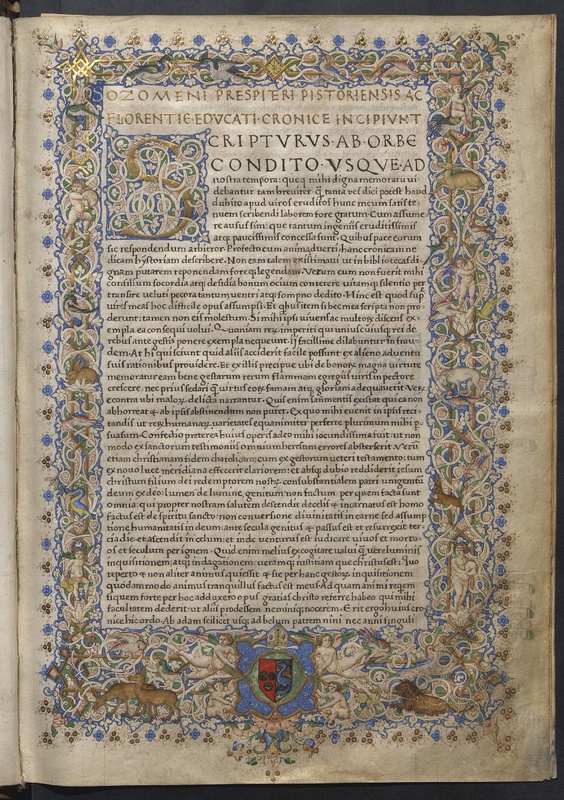 OZOMENI PRESPITERI PISTORIENSIS AC
FLORENTIE·EDVCATI·CRONICE INCIPIVNT
SCRIPTVRVS·AB·ORBE
CONDITO·VSQVE·AD
nostra tempora: queq; mihi digna memoratu vi
debantur tam breviter q̃ tanta res dici potest haud
dubito apud viros eruditos hunc meum satis te
nuem scribendi laborem fore gratum. Cum assume
re ausus sim: que tantum ingeniis eruditissimis
atq; paucissimis concessa sunt. Quibus pace eorum
sic respondendum arbitror. Profecto cum animadverti: hanc cronicam ne
dicam hystoriam describere. Non eam talem existimavi ut in bibliotecas di
gnam putarem reponendam foreq; legendam. Verum cum non fuerit mihi
consilium socordia atq; desidia bonum ocium conterere vitamq; silentio per
transire veluti pecora tantum ventri atq; sompno dedito. Hinc est quod sup
vires meas hoc difficile opus assumpsi. Et
derunt: tamen non eis molestum. Si mihi ipsi
empla ea consequi volui. Quoniam rerum imperiti qui unius cuiusq; rei de
rebus ante gestis ponere exempla nequeunt. Ii facillime dilabuntur in frau
dem. At hi qui sciunt quid aliis acciderit facile possunt ex alieno adventu
suis rationibus providere. Et ex illis precipue ubi de
memoratu eam bene gestarum rerum flammam egregiis viris in pectore
crescere: nec prius sedari q̃ virtus eorum famam atq; gloriam adequaverit.
econtra ubi malorum delicta narrantur. Quis enim sanementis existat qui ea non
abhorreat & ab ipsis abstinendum non putet. Ex quo mihi evenit in ipsis reci
tandis ut rerum humanarum varietates equanimiter perferre plurimum mihi p
suasum. Confectio preterea huius operis adeo mihi iocundissima fuit ut non
modo ex sanctorum testimoniis omnium heresum errores absterserit
etiam christianam fidem chatolicam: cum ex gestorum veteri testamento: tum
ex novo luce meridiana effecerit clariorem: et absq; dubio reddiderit iesum
christum filium dei redemptorem nostrum consubstantialem patri unigenitum
deum ex deo: lumen de lumine, genitum non factum per quem facta sunt
omnia: qui propter nostram salutem descendit de celis & incarnatus est homo
factus est de spiritu sancto: non conversione divinitatis in carne sed assump
tione humanitatis in deum ante secula genitus & passus est et resurrexit ter
tia die et ascendit in celum: et inde venturus est iudicare vivos et mortu
os et seculum per ignem. Quid enim melius excogitare valui q̃ vere luminis
inquisitionem; atq; indagationem: veramq; iustitiam que christus est: Quo
reperto & non aliter animus quiescit & sic per hanc gestorum inquisitionem
quodammodo animus tranquillus factus est meus. Ad quam animi requiem
si quem forte per hoc adduxero opus gratias christo referre habeo qui mihi
facultatem dederit: ut aliis prodessem nemini q; nocerem. Erit ergo huius cro
nice hic ordo. Ab adam scilicet usq; ad belum patrem nini nec anni singuli